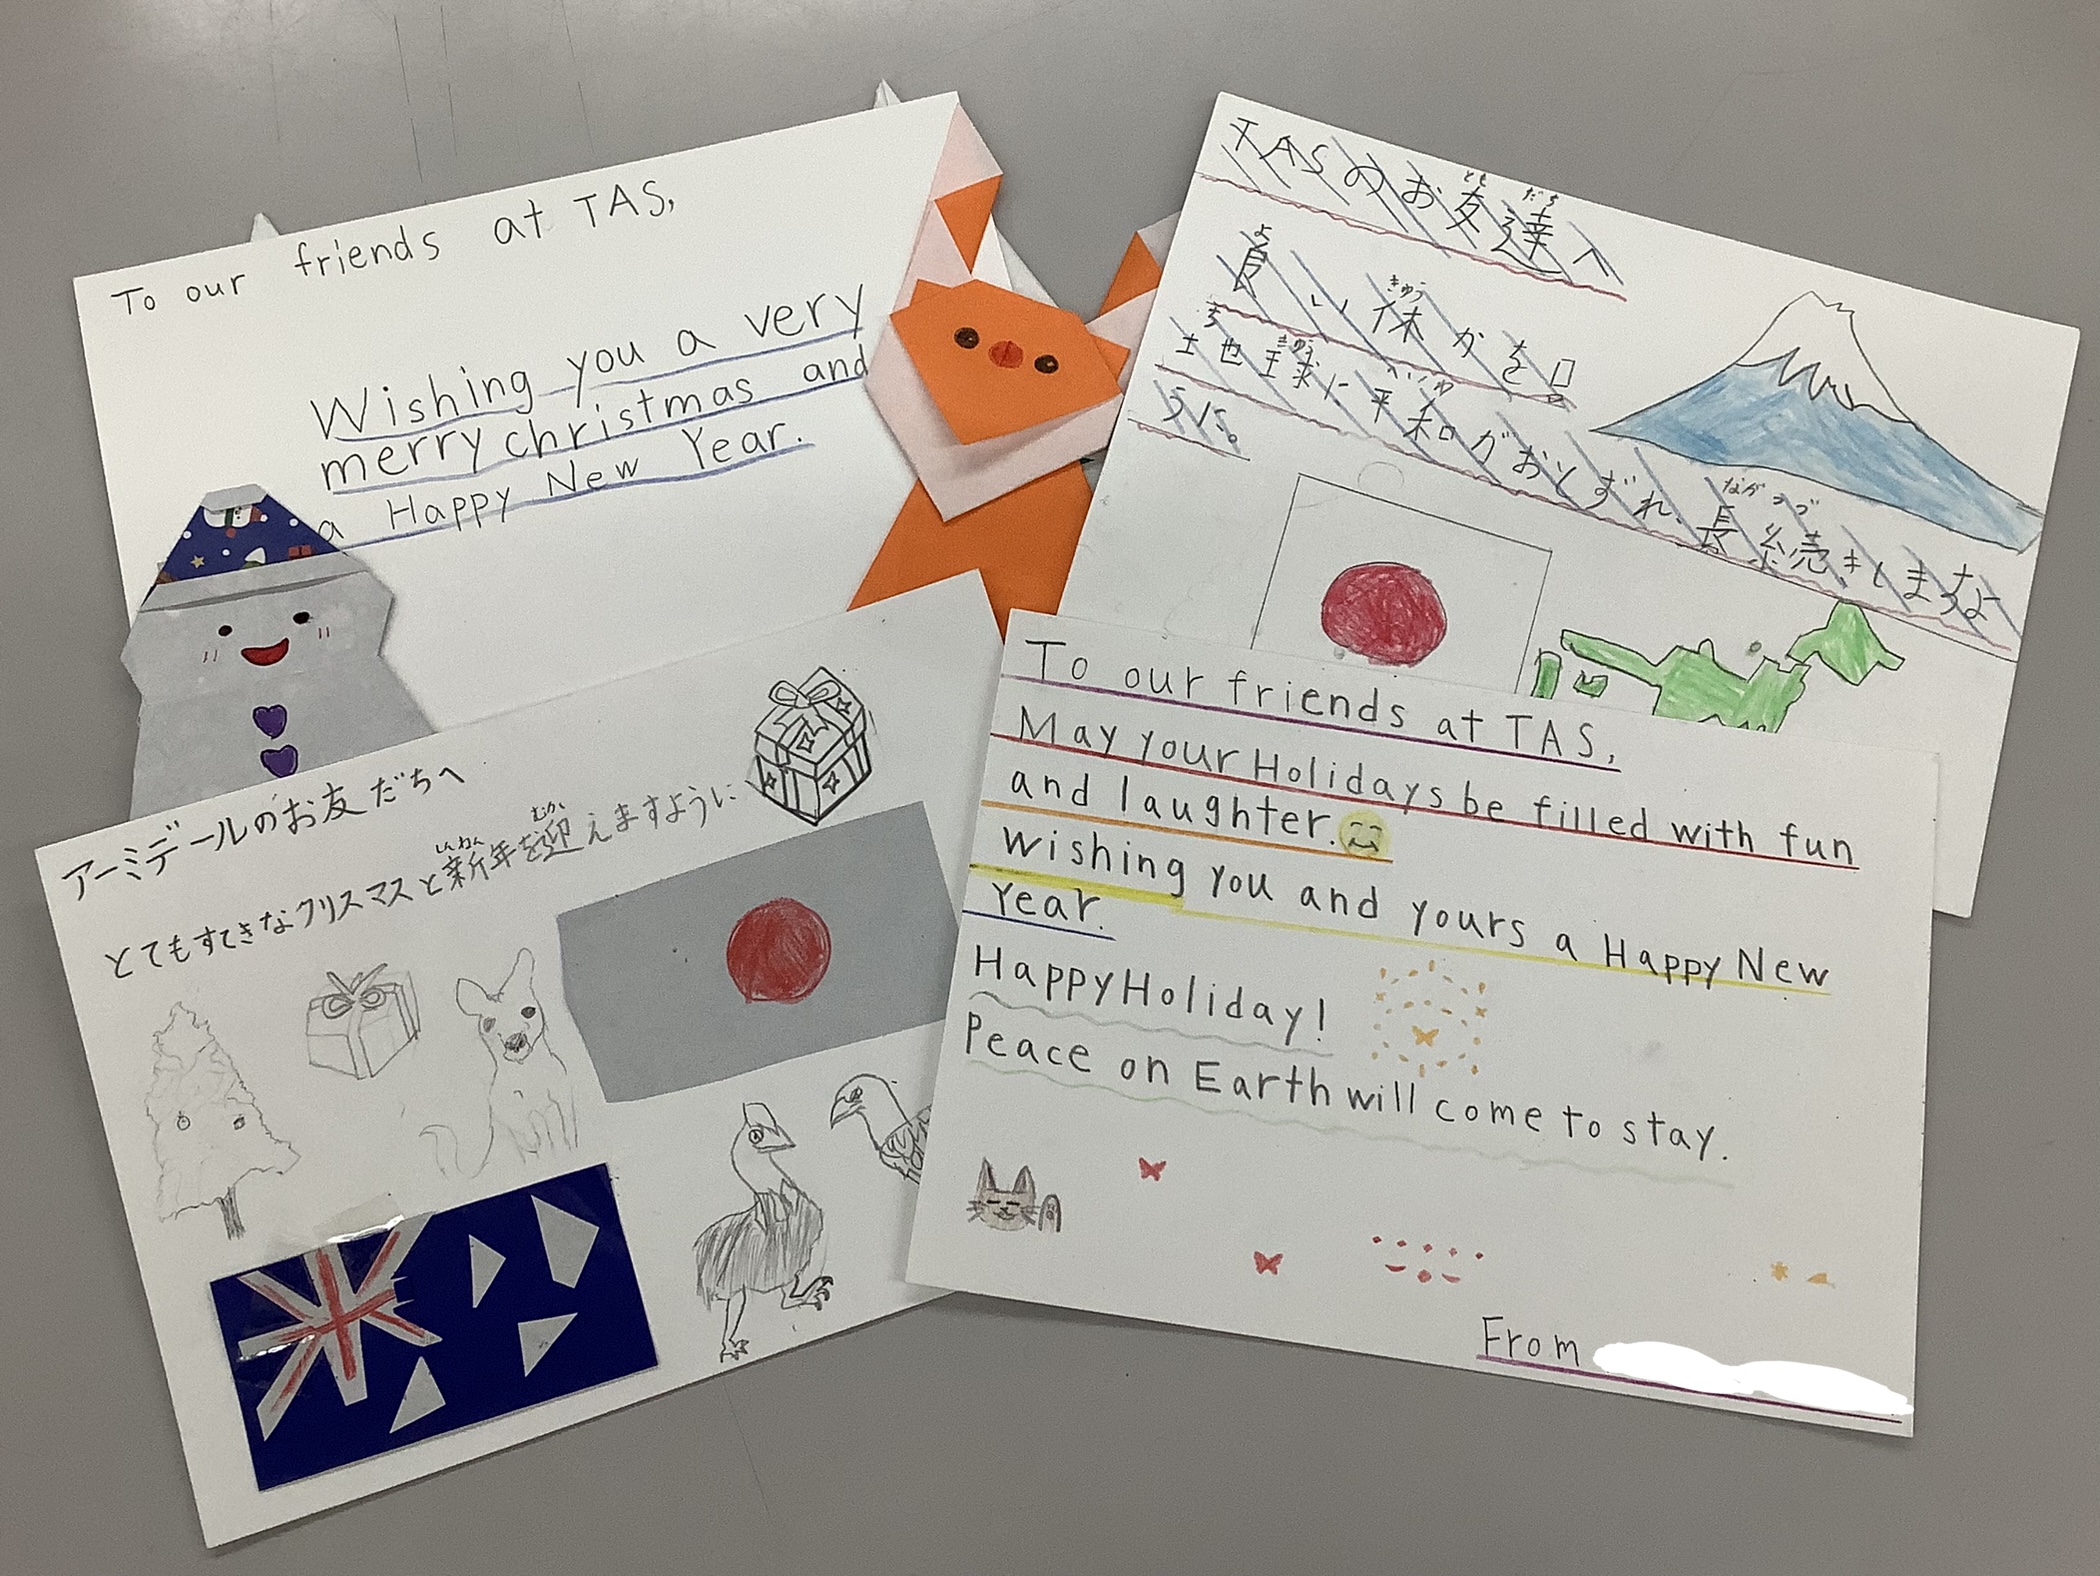 To our friends at TAS,
Wishing you a very
merry christmas and
a Happy New Year.
TASのお友達へ
とも だち
良い休かを口
よ きゅう
地球に平和がおとずれ、長続きしますよ
ち きゅう へいわ なが つづ
うに。
アーミデールのお友だちへ
とてもすてきなクリスマスと新年を迎えますように
しんねん むか
To our friends at TAS,
May your Holidays be filled with fun
and laughter.
Wishing you and yours a Happy New
Year.
Happy Holiday!
Peace on Earth will come to stay.
From